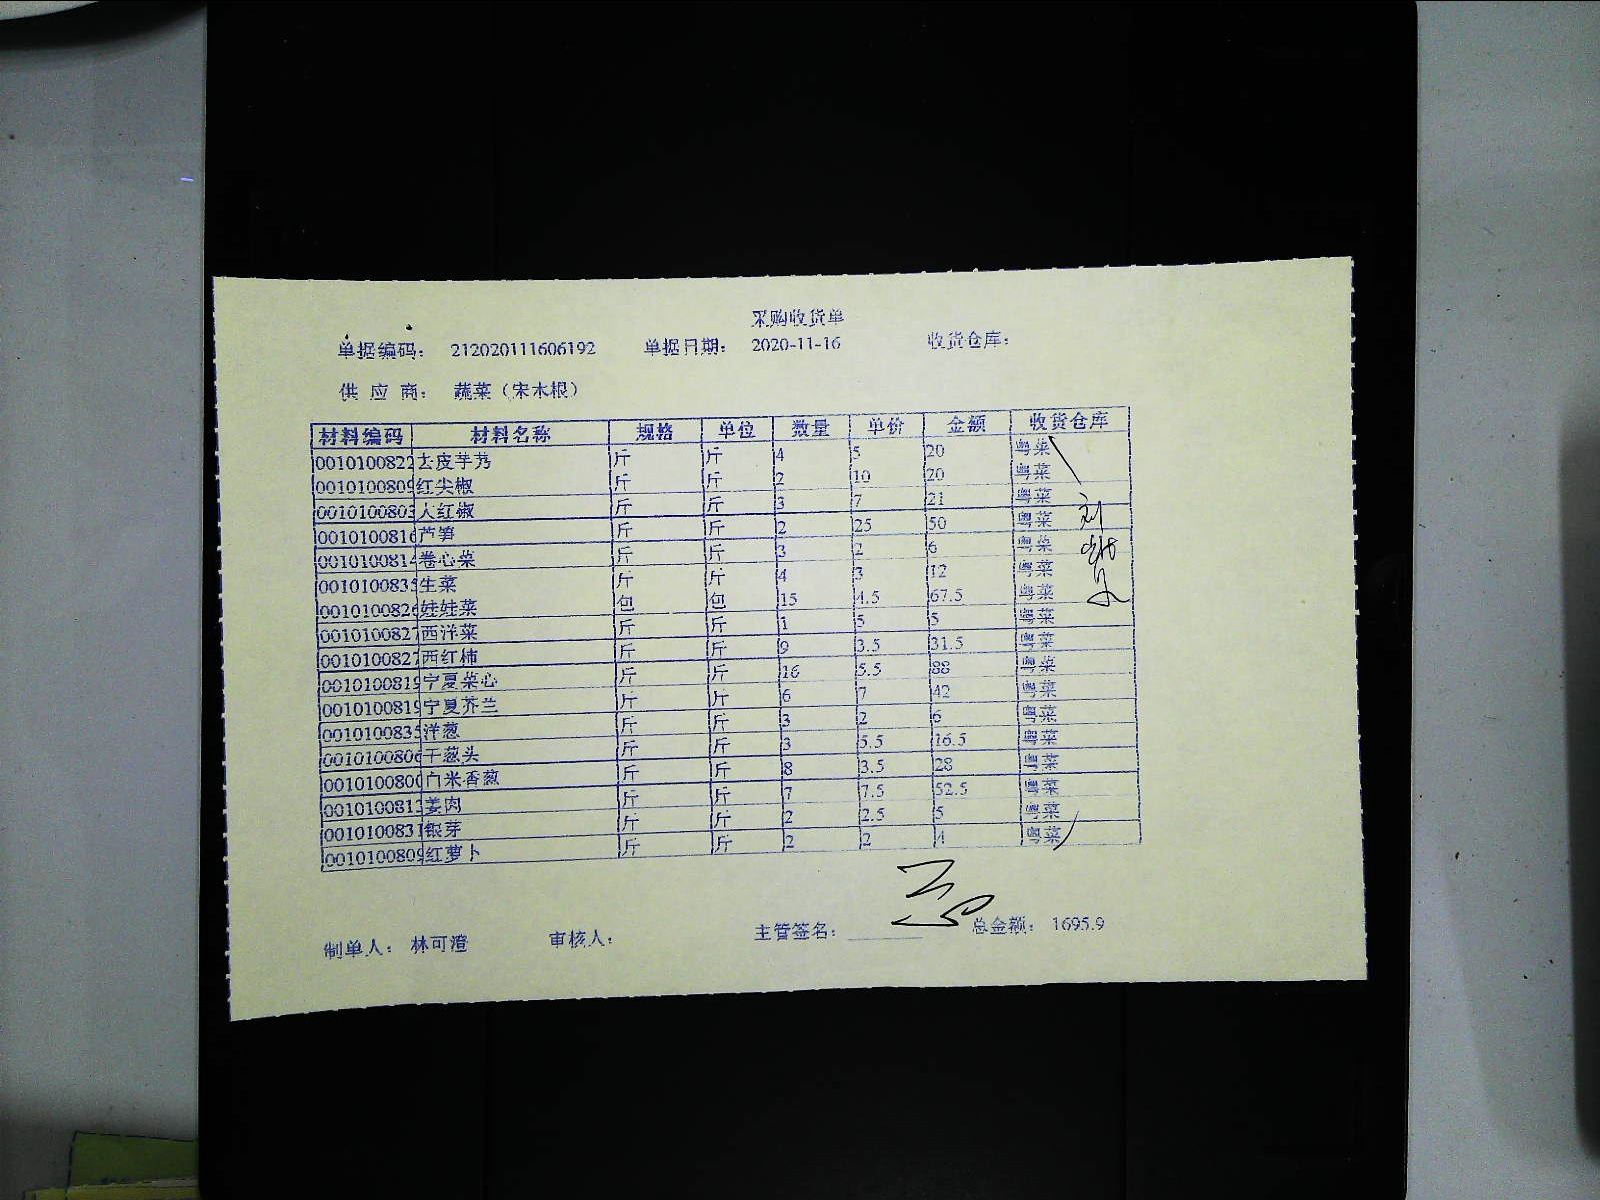 采购收货单
单据编码： 212020111606192 单据日期： 2020-11-16 收货仓库：
供 应 商： 蔬菜（宋木根）
材料编码 材料名称 规格 单位 数量 单价 金额 收货仓库
0010100822 去皮芋艿 斤 斤 4 5 20 粤菜
0010100809 红尖椒 斤 斤 2 10 20 粤菜
0010100803 大红椒 斤 斤 3 7 21 粤菜
0010100816 芦笋 斤 斤 2 25 50 粤菜
0010100814 卷心菜 斤 斤 3 2 6 粤菜
0010100835 生菜 斤 斤 4 3 12 粤菜
0010100826 娃娃菜 包 包 15 4.5 67.5 粤菜
0010100827 西洋菜 斤 斤 1 5 5 粤菜
0010100827 西红柿 斤 斤 9 3.5 31.5 粤菜
0010100819 宁夏菜心 斤 斤 16 5.5 88 粤菜
0010100819 宁夏芥兰 斤 斤 6 7 42 粤菜
0010100835 洋葱 斤 斤 3 2 6 粤菜
0010100806 干葱头 斤 斤 3 5.5 16.5 粤菜
0010100800 白米香葱 斤 斤 8 3.5 28 粤菜
0010100812 姜肉 斤 斤 7 7.5 52.5 粤菜
0010100831 银芽 斤 斤 2 2.5 5 粤菜
0010100809 红萝卜 斤 斤 2 2 4 粤菜
制单人： 林可澄 审核人： 主管签名： 总金额： 1695.9